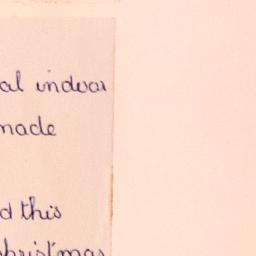 al indoor
made
d this
christmas